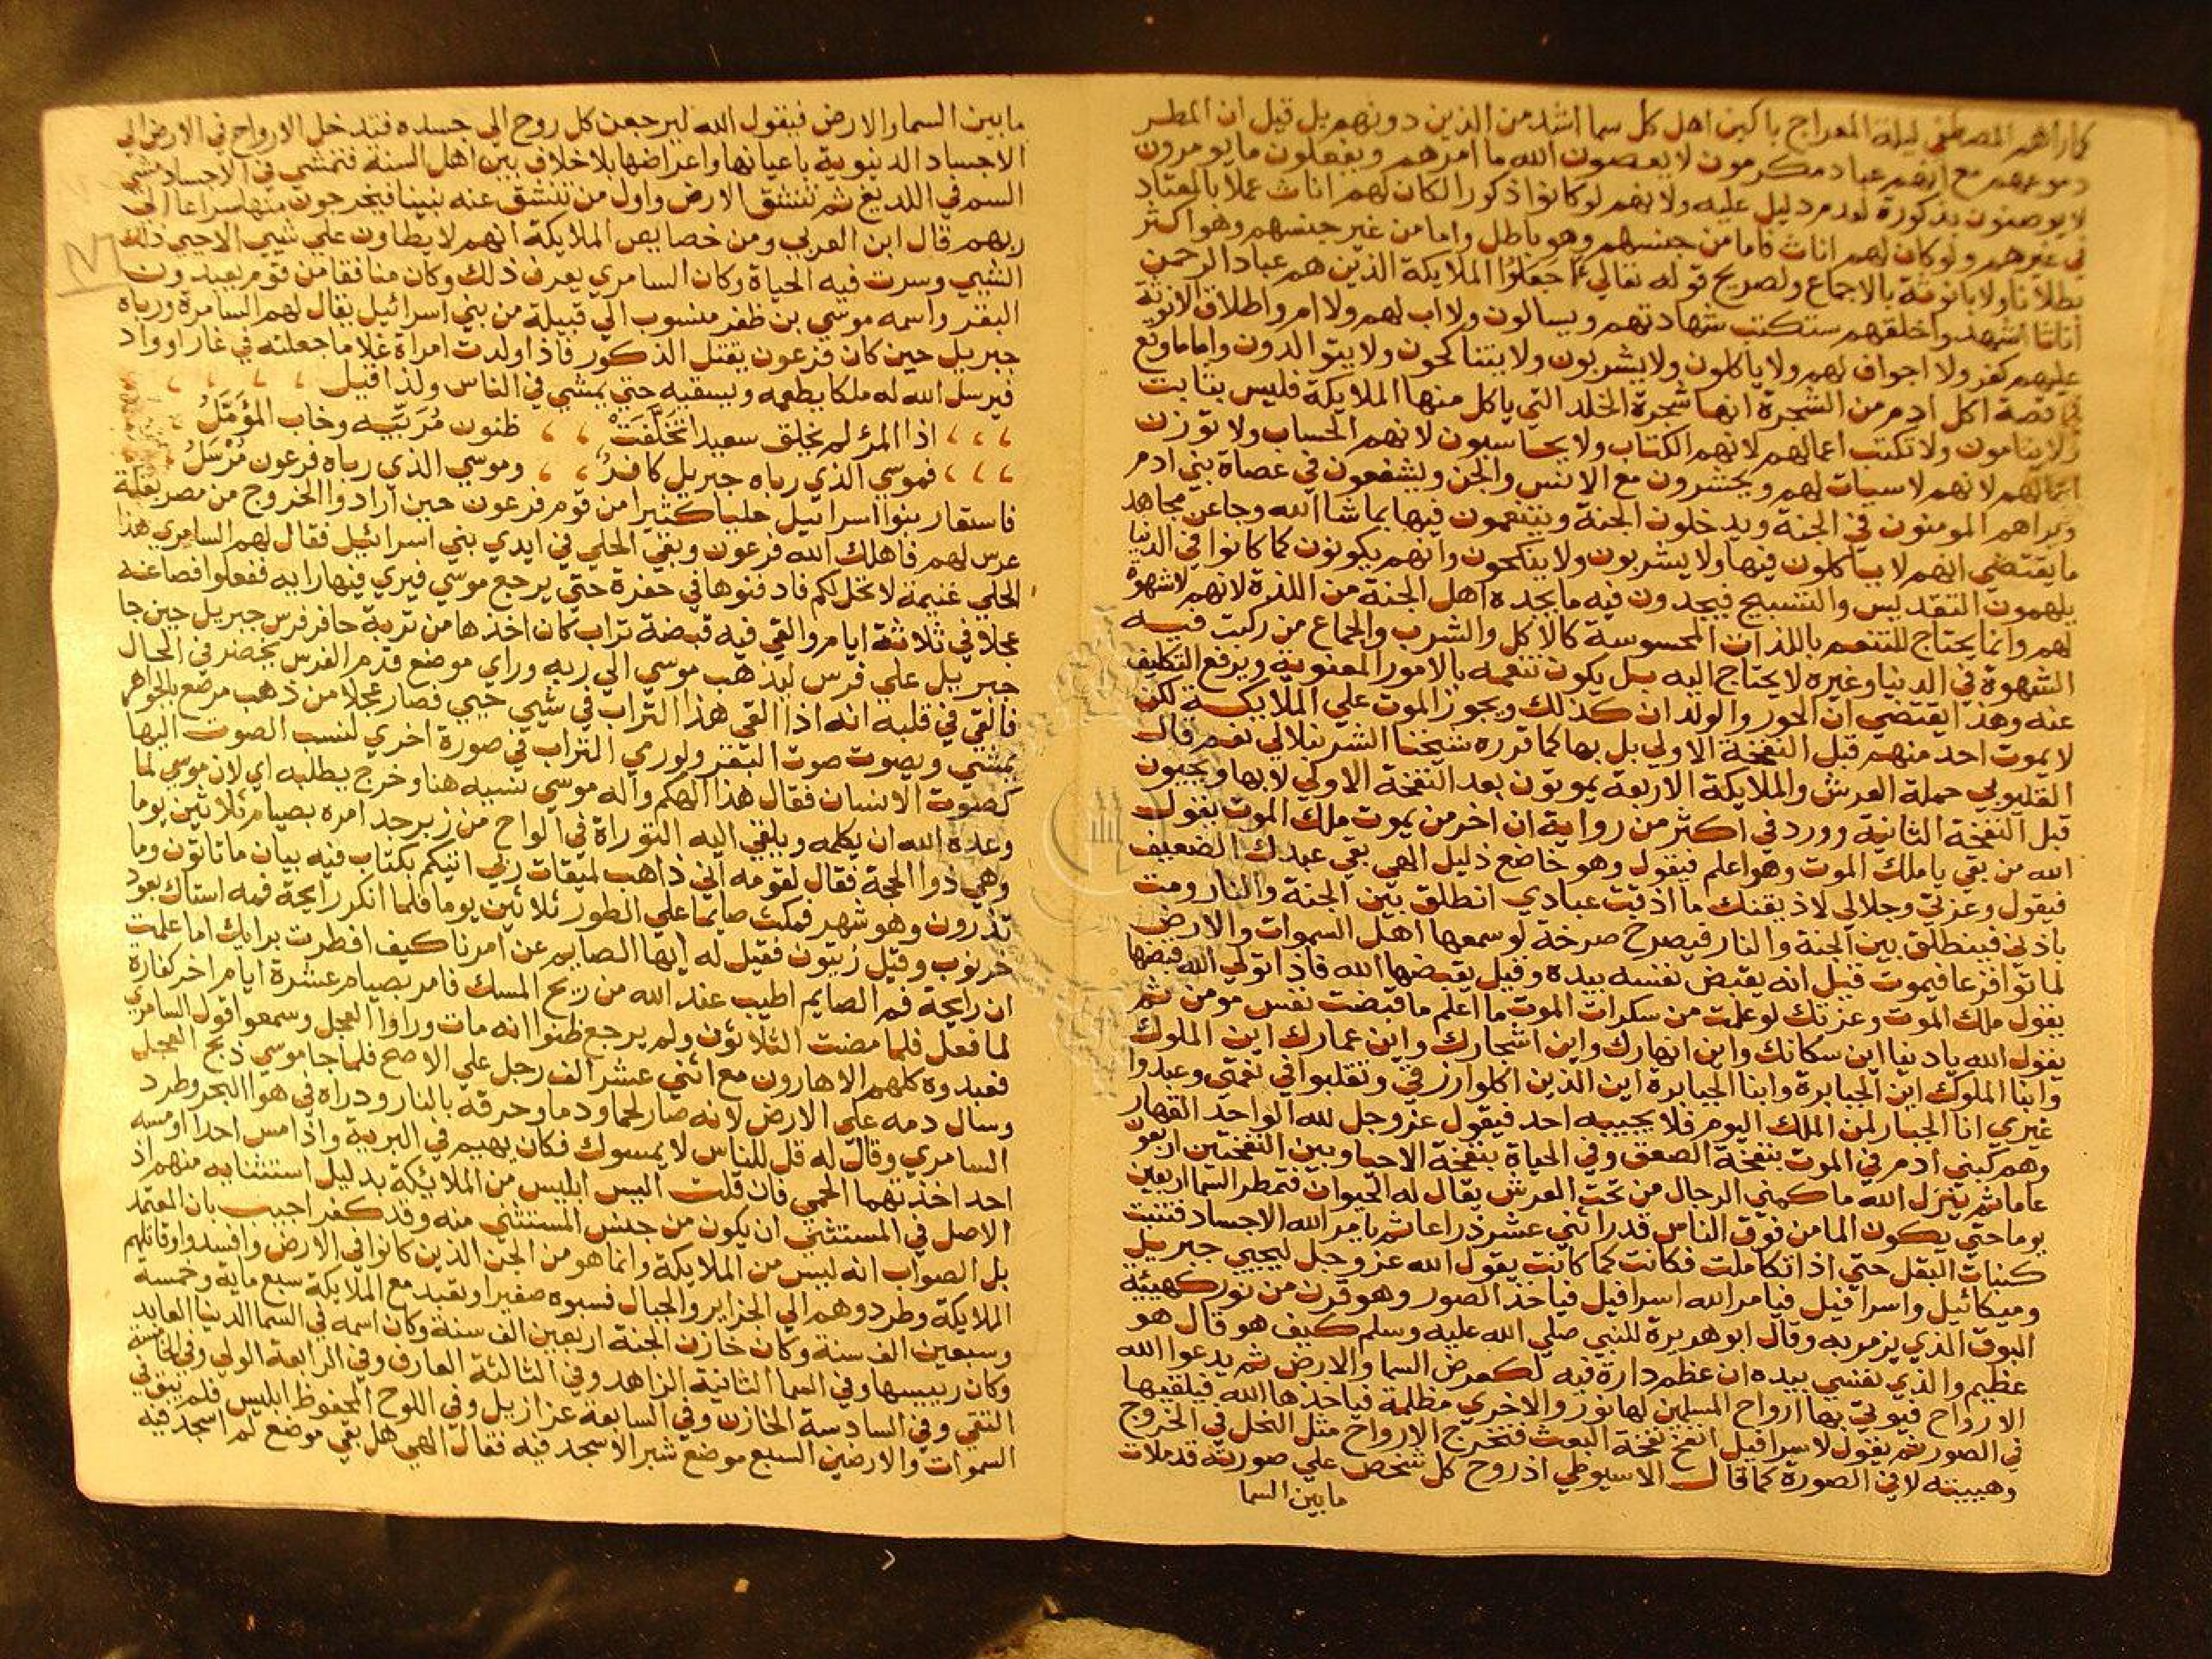 كما راهم المصطفي ليلة المعراج باكين اهل كل سما اشد من الذين دونهم بل قيل ان المطر
دموعهم مع انهم عباد مكرمون لا يعصون الله ما امرهم ويفعلون ما يومرون
لا يوصفون بذكورة لعدم دليل عليه ولانهم لو كانوا ذكورا لكان لهم اناث عملا بالمعتاد
في غيرهم ولو كان لهم اناث فاما من جنسهم وهو باطل واما من غير جنسهم وهو اكثر
بطلانا ولا بانوثة بالاجماع ولصريح قوله تعالي وجعلوا الملايكة الذين هم عباد الرحمن
اناثا اشهدوا خلقهم ستكتب شهادتهم ويسالون ولا اب لهم ولا ام واطلاق الانوثة
عليهم كفر ولا اجواف لهم ولا ياكلون ولا يشربون ولا يتناكحون ولا يتوالدون واما ما وقع
في قصة اكل ادم من الشجرة انها شجرة الخلد التي ياكل منها الملايكة فليس بثابت
ولا ينامون ولا تكتب اعمالهم لانهم الكتاب ولا يحاسبون لانهم الحساب ولا توزن
اعمالهم لانهم لا سيات لهم ويحشرون مع الانس والجن ويشفعون في عصاة بني ادم
ويراهم المومنون في الجنة ويدخلون الجنة ويتنعمون فيها بما شا الله وجا عن مجاهد
ما يقتضي انهم لا ياكلون فيها ولا يشربون ولا ينكحون وانهم يكونون كما كانوا في الدنيا
يلهمون التقديس والتسبيح فيجدون فيه ما يجده اهل الجنة من اللذة لانهم لا شهوة
لهم وانما يحتاج للتنعم باللذات المحسوسة كالاكل والشرب والجماع من ركبت فيه
الشهوة في الدنيا وغيره لا يحتاج اليه بل يكون تنعمه بالامور المعنوية ويرفع التكليف
عنه وهذا يقتضي ان الحور والولدان كذلك ويجوز الموت علي الملايكة لكن
لا يموت احد منهم قبل النفخة الاولي بل بها كما قرره شيخنا الشرنبلالي نعم قال
القليوبي حملة العرش والملايكة الاربعة يموتون بعد النفخة الاولي لا بها ويحيون
قبل النفخة الثانية وورد في اكثر من رواية ان اخر من يموت ملك الموت يقول
الله من بقي يا ملك الموت وهو اعلم فيقول وهو خاضع ذليل الهي بقي عبدك الضعيف
فيقول وعزتي وجلالي لاذيقنك ما اذقت عبادي انطلق بين الجنة والنار ومت
باذني فينطلق بين الجنة والنار فيصرخ صرخة لو سمعها اهل السموات والارض
لماتوا فزعا فيموت قيل انه يقبض نفسه بيده وقيل يقبضها الله فاذا تولي الله قبضها
يقول ملك الموت وعزتك لو علمت من سكرات الموت ما اعلم ما قبضت نفس مومن ثم
يقول الله يا دنيا اين سكانك واين انهارك واين اشجارك واين عمارك اين الملوك
وابنا الملوك اين الجبابرة وابنا الجبابرة اين الذين اكلوا رزقي وتقلبوا في نعمتي وعبدوا
غيري انا الجبار لمن الملك اليوم فلا يجيبه احد فيقول عز وجل لله الواحد القهار
وهم كبني ادم في الموت بنفخة الصعق وفي الحياة بنفخة الاحيا وبين النفختين اربعون
عاما ثم ينزل الله ما كمني الرجال من تحت العرش يقال له الحيوان فتمطر السما اربعين
يوما حتي يكون الما من فوق الناس قدر اثني عشر ذراعا ثم يامر الله الاجساد فتنبت
كنبات البقل حتي اذا تكاملت فكانت كما كانت يقول الله عز وجل ليحيي جبريل
وميكائيل واسرافيل فيامر الله اسرافيل فياخذ الصور وهو قرن من نور كهيئة
البوق الذي يزمر به وقال ابو هريرة للنبي صلي الله عليه وسلم كيف هو قال هو
عظيم والذي نفسي بيده ان عظم دارة فيه لكعرض السما والارض ثم يدعوا الله
الارواح فيوتي بها ارواح المسلمين لها نور والاخري مظلمة فياخذها الله فيلقيها
في الصور ثم يقول لاسرافيل انفخ نفخة البعث فتخرج الارواح مثل النحل في الخروج
وهيئته لا في الصورة كما قال الاسيوطي اذ روح كل شخص علي صورته قد ملات
ما بين السما
ما بين السما والارض فيقول الله ليرجعن كل روح الي جسده فتدخل الارواح في الارض الي
الاجساد الدنيوية باعيانها واعراضها بلا خلاف بين اهل السنة فتمشي في الاجساد مشي
السم في اللديغ ثم تنشق الارض واول من تنشق عنه نبينا فيخرجون منها سراعا الي
ربهم قال ابن العربي ومن خصايص الملايكة انهم لا يطاون علي شيي الا حيي ذلك
الشيي وسرت فيه الحياة وكان السامري يعرف ذلك وكان منافقا من قوم يعبدون
البقر واسمه موسي بن ظفر منسوب الي قبيلة من بني اسرائيل يقال لهم السامرة ورباه
جبريل حين كان فرعون يقتل الذكور فاذا ولدت امراة غلاما جعلته في غار او واد
فيرسل الله له ملكا يطعمه ويسقيه حتي يمشي في الناس ولذا قيل
اذا المرؤ لم يخلق سعيدا تخلفت ظنون مربيه وخاب المؤمل
فموسي الذي رباه جبريل كافر وموسي الذي رباه فرعون مرسل
فاستعار بنوا اسرائيل حليا كثيرا من قوم فرعون حين ارادوا الخروج من مصر بعلة
عرس لهم فاهلك الله فرعون وبقي الحلي في ايدي بني اسرائيل فقال لهم السامري هذا
الحلي غنيمة لا تحل لكم فادفنوها في حفرة حتي يرجع موسي فيري فيها رايه ففعلوا فصاغه
عجلا في ثلاثة ايام والقي فيه قبضة تراب كان اخذها من تربة حافر فرس جبريل حين جا
جبريل علي فرس ليذهب موسي الي ربه وراي موضع قدم الفرس يخضر في الحال
فالقي في قلبه انه اذا القي هذا التراب في شيي حيي فصار عجلا من ذهب مرصع بالجواهر
يمشي ويصوت صوت البقر ولو رمي التراب في صورة اخري لنسب الصوت اليها
كصوت الانسان فقال هذا الهكم واله موسي نسيه هنا وخرج يطلبه اي لان موسي لما
وعده الله ان يكلمه ويلقي اليه التوراة في الواح من زبرجد امره بصيام ثلاثين يوما
وهي ذوا الحجة فقال لقومه اني ذاهب لميقات ربي اتيكم بكتاب فيه بيان ما تاتون وما
تذرون وهو شهر فمكث صايما علي الطور ثلاثين يوما فلما انكر رايحة فمه استاك بعود
خرنوب وقيل زيتون فقيل له ايها الصايم عن امرنا كيف افطرت برايك اما علمت
ان رايحة فم الصايم اطيب عند الله من ريح المسك فامر بصيام عشرة ايام اخر كفارة
لما فعل فلما مضت الثلاثون ولم يرجع ظنوا انه مات وراوا العجل وسمعوا قول السامري
فعبدوه كلهم الا هارون مع اثني عشر الف رجل علي الاصح فلما جا موسي ذبح العجل
وسال دمه علي الارض لانه صار لحما ودما وحرقه بالنار وذراه في هوا البحر وطرد
السامري وقال له قل للناس لا يمسوك فكان يهيم في البرية واذا مس احدا او مسه
احد اخذتهما الحمي فان قلت اليس ابليس من الملائكة بدليل استثنايه منهم اذ
الاصل في المستثني ان يكون من جنس المستثني منه وقد كفر اجيب بان المعتمد
بل الصواب انه ليس من الملايكة وانما هو من الجن الذين كانوا في الارض وافسدوا وقاتلهم
الملايكة وطردوهم الي الجزاير والجبال فسبوه صغيرا وتعبد مع الملايكة سبع ماية وخمسة
وسبعين الف سنة وكان خازن الجنة اربعين الف سنة وكان اسمه في السما الدنيا العابد
وكان رييسها وفي السما الثانية الزاهد وفي الثالثة العارف وفي الرابعة الولي وفي الخامسة
التقي وفي السادسة الخازن وفي السابعة عزازيل وفي اللوح المحفوظ ابليس فلم يبق في
السموات والارضين السبع موضع شبر الا سجد فيه فقال الهي هل بقي موضع لم اسجد فيه